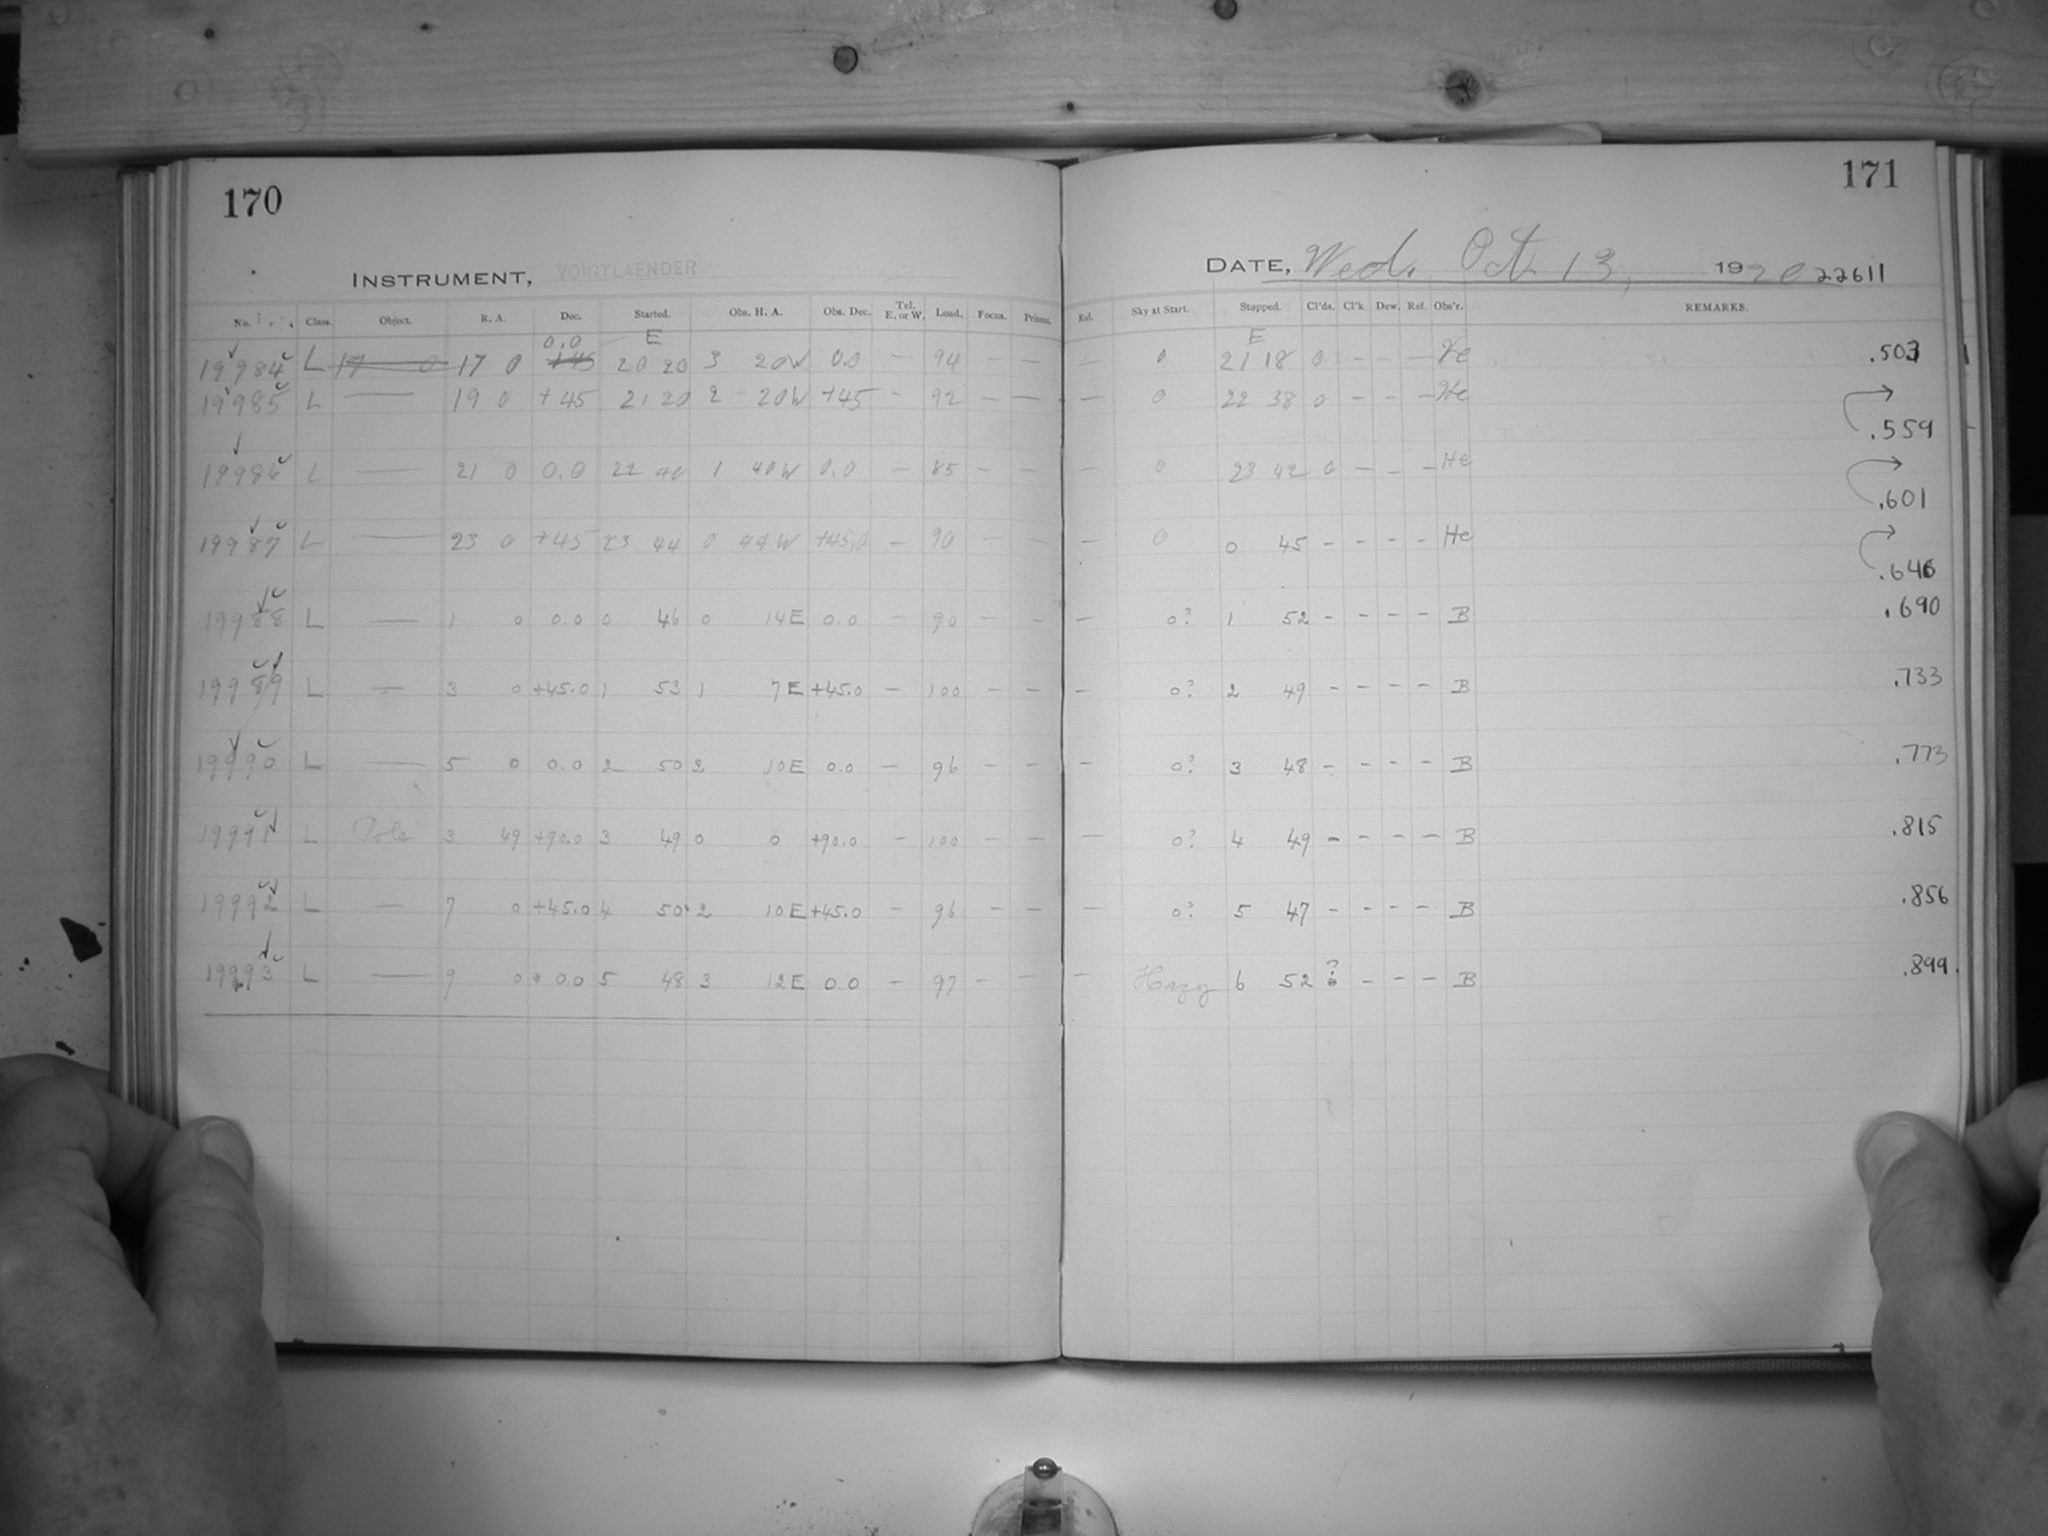 170
171
INSTRUMENT, VOIGTLAENDER
DATE, Wed. Oct. 13, 1920 22611
No. Class. Object. R. A. Dec. Started. Obs. H. A. Obs. Dec. Tel. E. or W. Load. Focus. Prisms. Sky at Start. Stopped. Cl'ds. Cl'k Dew. Ref. Obs'r. REMARKS.
0.0 E E
19984 L 17 0 17 0 +45 20 20 3 20W 0.0 — 94 — — — 0 21 18 0 - - - He .503
19985 L — 19 0 +45 21 20 2 20W +45 - 92 — — — 0 22 38 0 - - - He
.559
19986 L — 21 0 0.0 22 40 1 40W 0.0 — 85 - - - 0 23 42 0 - - - He
.601
19987 L — 23 0 +45 23 44 0 44W +45.0 - 90 - - - 0 0 45 - - - - He
.646
19988 L — 1 0 0.0 0 46 0 14E 0.0 — 90 - - — 0? 1 52 - - - - B .690
19989 L — 3 0 +45.0 1 53 1 7E +45.0 — 100 - - - 0? 2 49 - - - - B .733
19990 L — 5 0 0.0 2 50 2 10E 0.0 — 96 - - - 0? 3 48 - - - - B .773
19991 L Pole 3 49 +90.0 3 49 0 0 +90.0 - 100 - - — 0? 4 49 - - - - B .815
19992 L — 7 0 +45.0 4 50 2 10E +45.0 - 96 - - - 0? 5 47 - - - - B .856
19993 L — 9 0 0.0 5 48 3 12E 0.0 - 97 - - - Hazy 6 52 ? - - - B .899